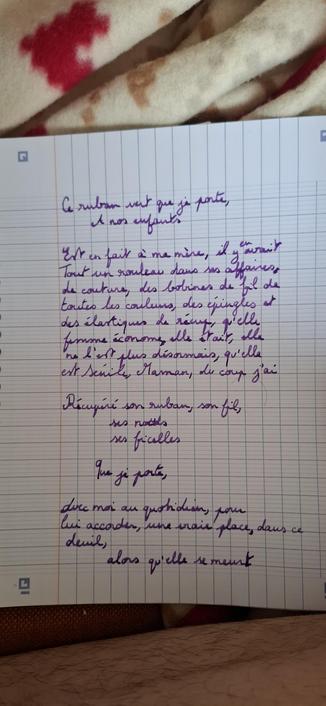 Ce ruban vert que je porte,
A nos enfants
Est en fait à ma mère, il y en avait
Tout un rouleau dans ses affaires
de couture, des bobines de fil de
toutes les couleurs, des épingles et
des élastiques de récup, qu'elle
femme économe, elle était, elle
ne l'est plus désormais, qu'elle
est sénile, Maman, du coup j'ai
Récupéré son ruban, son fil,
ses
ses ficelles
Que je porte,
Avec moi au quotidien, pour
lui accorder, une vraie place, dans ce
deuil,
alors qu'elle se meurt